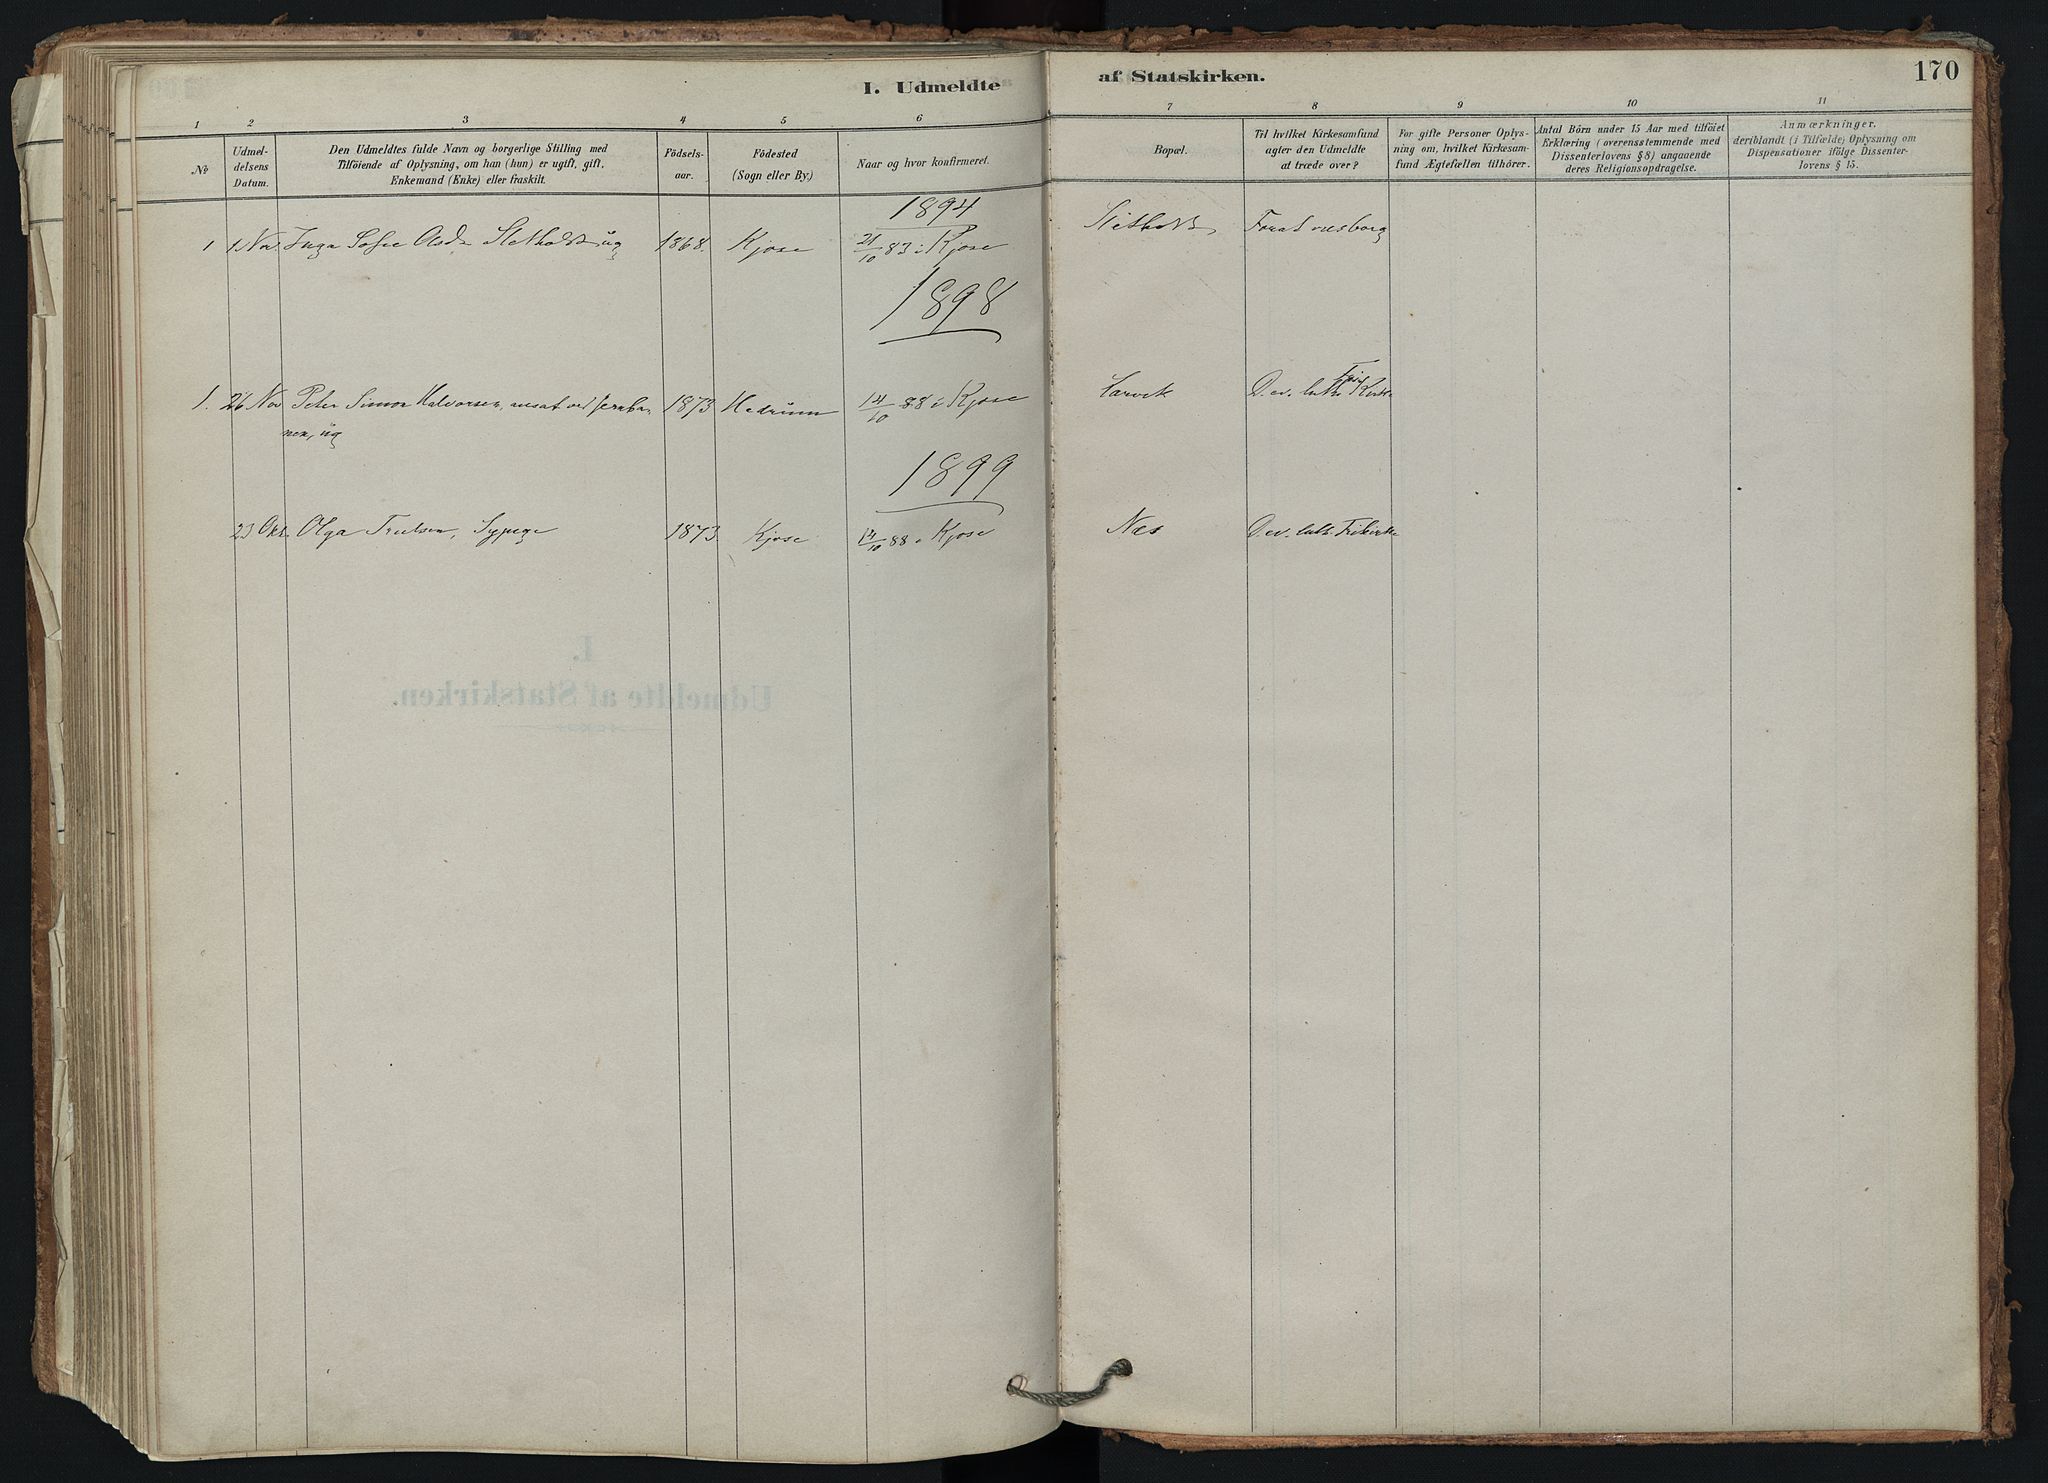 I. Udmeldte af Statskirken. 170
1 2 3 4 5 6 7 8 9 10 11
No
Udmel-
delsens
Datum.
Den Udmeldtes fulde Navn og borgerlige Stilling med
Tilföiende af Oplysning, om han (hun) er ugift, gift,
Enkemand (Enke) eller fraskilt.
Födsels-
aar.
Födested
(Sogn eller By.)
Naar og hvor konfirmeret.
Bopæl.
Til hvilket Kirkesamfund
agter den Udmeldte
at træde over?
For gifte Personer Oplys-
ning om, hvilket Kirkesam-
fund Ægtefællen tilhörer.
Antal Börn under 15 Aar med tilföiet
Erklæring (overensstemmende med
Dissenterlovens § 8) angaaende
deres Religionsopdragelse.
Anmærkninger,
deriblandt (i Tilfælde) Oplysning om
Dispensationer ifölge Dissenter-
lovens § 15.
1894
1 1 Nov. Inga Sofie Sletholdt ug 1868. Kjose 21/10 83 i Kjose
1898
1. 26 Nov Peter Simon Halvorsen, ansat ved Jernba- 1873 Hedrum 14/10 88 i Kjose Larvik D. ev. luth. Fri Kirke
nen, ug
1899
23 Okt. Olga Truelsen, Sypige 1873 Kjose 14/10 88 i Kjose Næs D. ev. luth. Frikirke
I.
Udmeldte af Statskirken.